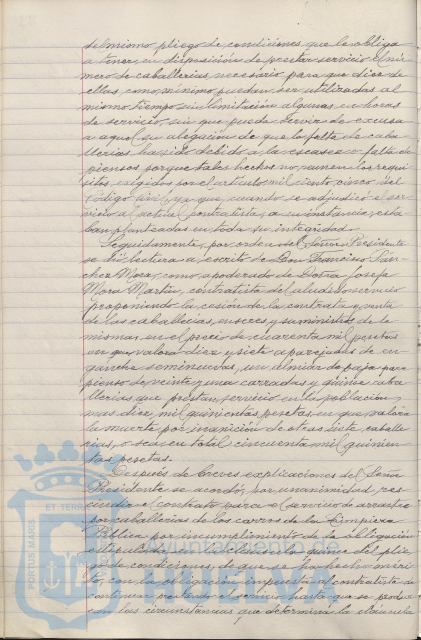 del mismo pliego de condiciones que le obliga
a tener, en disposición de prestar servicio el nú-
mero de caballerías, necesario para que diez de
ellas como mínimo puedan ser utilizadas al
mismo tiempo sin limitación alguna en horas
de servicio sin que pueda servir de excusa
a aquel su alegación de que la falta de caba-
llerías ha sido debido a la escasez o falta de
piensos porque tales hechos no reunen los requi-
sitos exigidos por el artículo mil ciento cinco del
Código Civil, ya que cuando se adjudicó el ser-
vicio al actual contratista, a su instancia, esta-
ban planteadas en toda su integridad.
Seguidamente, por orden del Señor Presidente
se dió lectura a escrito de Don Francisco Sán-
chez Mora, como apoderado de Doña Josefa
Mora Martín, contratista del aludido servicio
proponiendo la cesión de la contrata y venta
de las caballerías, enseres y suministro de la
misma, en el precio de cuarenta mil pesetas
en que valora diez y siete aparejadas de en-
ganche seminuevas, un almiar de paja para
pienso de veinte y una carradas y quince caba-
llerías que prestan servicio en la población
mas diez mil quinientas pesetas en que valora
la muerte por inanición de otras siete caballe-
rías, o sea en total cincuenta mil quinien-
tas pesetas.
Después de breves explicaciones del Señor
Presidente se acordó, por unanimidad, res-
cindir el contrato para el servicio de arrastre
por caballerías de los carros de la Limpieza
Pública por incumplimiento de la obligación
estipulada en la cláusula quince del plie-
go de condiciones, de que se ha hecho méri-
to, con la obligación impuesta al contratista de
continuar prestando el servicio hasta que se produz-
can las circunstancias que determina la cláusula
PORTUS MARIS
ET TERRA
Ayuntamiento de